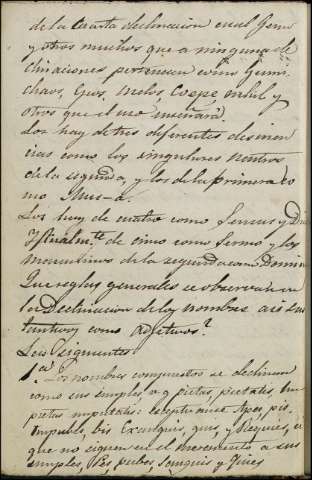 de la Cuarta declinacion en el Geno
y otros muchos que a ninguna de
clinaciones pertenecen como Gumi,
Chaos, Epos, Melos, Coepe nihil y
otros que el uso enseñará.
Los hay de tres diferentes desinen
cias como los singulares Neutros
de la segunda, y los de la primera co
mo Mus-a.
Los hay de cuatro como y
Y finalm.te de cinco como Sermo y los
masculinos de la segunda como Domin
Que reglas generales se observan en
la Declinacion de los nombres asi sus
tantivos como Adjetivos?
Las siguientes
1.a Los nombres compuestos se declinan
como sus simples, v. g. pietas, pietatis, Im
pietas impietatis: exceptuanse
que no siguen en el incremento a sus
simples, Pes, pedis, Sanguis y Quies